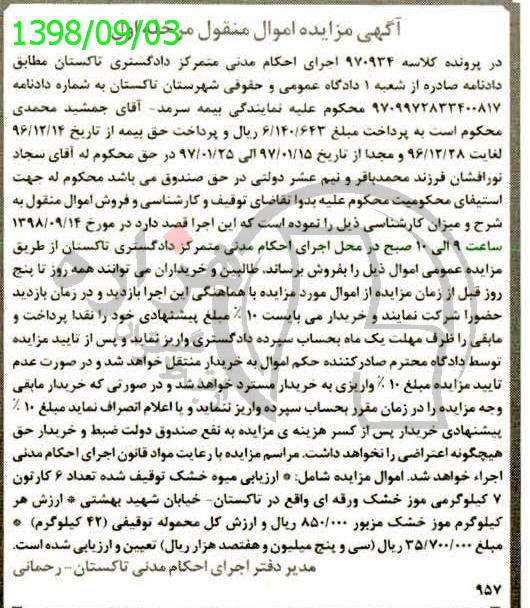 1398/09/03
آگهی مزایده اموال منقول مرحله اول
در پرونده کلاسه ۹۷۰۹۳۴ اجرای احکام مدنی متمرکز دادگستری تاکستان مطابق
دادنامه صادره از شعبه ۱ دادگاه عمومی و حقوقی شهرستان تاکستان به شماره دادنامه
۹۷۰۹۹۷۲۸۳۳۴۰۰۸۱۷ محکوم علیه نمایندگی بیمه سرمد- آقای جمشید محمدی
محکوم است به پرداخت مبلغ ۶/۱۴۰/۶۴۳ ریال و پرداخت حق بیمه از تاریخ ۹۶/۱۲/۱۴
لغایت ۹۶/۱۲/۲۸ و مجدا از تاریخ ۹۷/۰۱/۱۵ الی ۹۷/۰۱/۲۵ در حق محکوم له آقای سجاد
نورافشان فرزند محمدباقر و نیم عشر دولتی در حق صندوق می باشد محکوم له جهت
استیفای محکومیت محکوم علیه بدوا تقاضای توقیف و کارشناسی و فروش اموال منقول به
شرح و میزان کارشناسی ذیل را نموده است که این اجرا قصد دارد در مورخ ۱۳۹۸/۰۹/۱۴
ساعت ۹ الی ۱۰ صبح در محل اجرای احکام مدنی متمرکز دادگستری تاکستان از طریق
مزایده عمومی اموال ذیل را بفروش برساند. طالبین و خریداران می توانند همه روز تا پنج
روز قبل از زمان مزایده از اموال مورد مزایده با هماهنگی این اجرا بازدید و در زمان بازدید
حضورا شرکت نمایند و خریدار می بایست ۱۰٪ مبلغ پیشنهادی خود را نقدا پرداخت و
مابقی را ظرف مهلت یک ماه بحساب سپرده دادگستری واریز نماید و پس از تایید مزایده
توسط دادگاه محترم صادرکننده حکم اموال به خریدار منتقل خواهد شد و در صورت عدم
تایید مزایده مبلغ ۱۰٪ واریزی به خریدار مسترد خواهد شد و در صورتی که خریدار مابقی
وجه مزایده را در زمان مقرر بحساب سپرده واریز ننماید و یا اعلام انصراف نماید مبلغ ۱۰٪
پیشنهادی خریدار پس از کسر هزینه ی مزایده به نفع صندوق دولت ضبط و خریدار حق
هیچگونه اعتراضی را نخواهد داشت. مراسم مزایده با رعایت مواد قانون اجرای احکام مدنی
اجراء خواهد شد. اموال مزایده شامل: * ارزیابی میوه خشک توقیف شده تعداد ۶ کارتون
۷ کیلوگرمی موز خشک ورقه ای واقع در تاکستان- خیابان شهید بهشتی * ارزش هر
کیلوگرم موز خشک مزبور ۸۵۰/۰۰۰ ریال و ارزش کل محموله توقیفی (۴۲ کیلوگرم) *
مبلغ ۳۵/۷۰۰/۰۰۰ ریال (سی و پنج میلیون و هفتصد هزار ریال) تعیین و ارزیابی شده است.
مدیر دفتر اجرای احکام مدنی تاکستان- رحمانی
۹۵۷